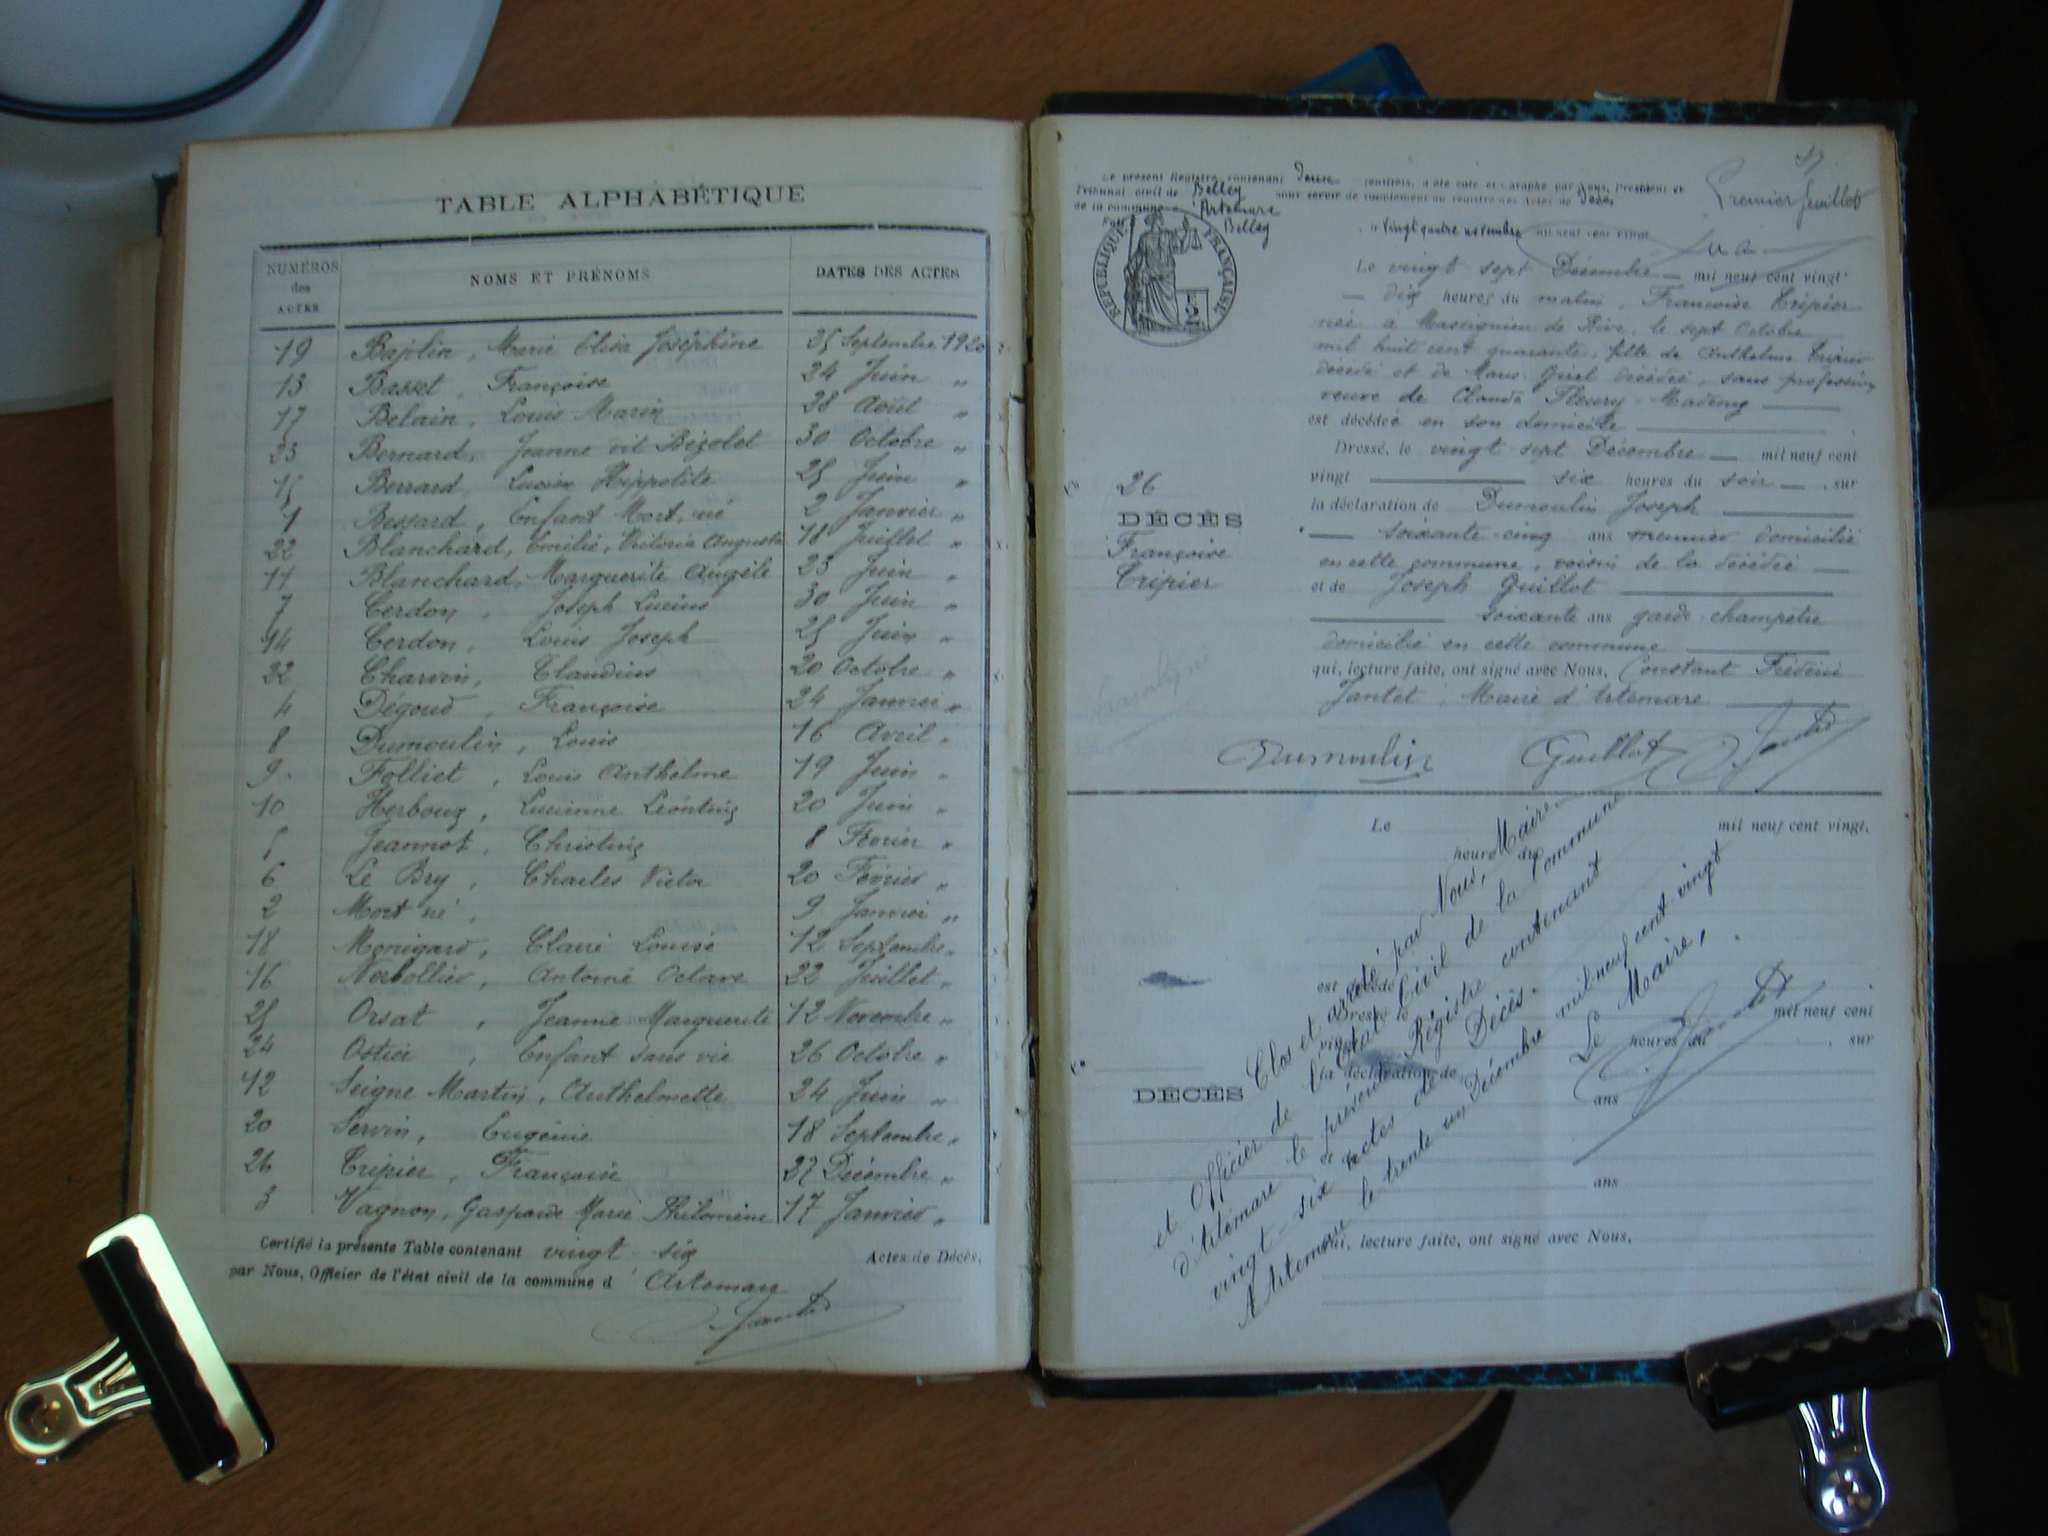 TABLE ALPHABÉTIQUE
NUMÉROS des ACTES NOMS ET PRÉNOMS DATES DES ACTES
19 Bajolin, Marie Elisa Joséphine 25 Septembre 1920
13 Basset, Françoise 24 Juin "
17 Belain, Louis Marin 28 Août "
23 Bernard, Jeanne dit Bizolet 30 Octobre "
15 Berrard, Lucien Hippolite 25 Juin "
1 Bessard, Enfant Mort, né 2 Janvier "
22 Blanchard, Emilie, Victoria Augusta 18 Juillet "
11 Blanchard, Marguerite Angèle 23 Juin "
7 Cerdon, Joseph Lucius 30 Juin "
14 Cerdon, Louis Joseph 25 Juin "
22 Charvin, Claudius 20 Octobre "
4 Dégoud, Françoise 24 Janvier "
8 Dumoulin, Louis 16 Avril "
9 Folliet, Louis Anthelme 19 Juin "
10 Herbouz, Lucienne Léontine 20 Juin "
5 Jeannot, Christine 8 Février "
6 Le Bry, Charles Victor 20 Février "
2 Mort né, 9 Janvier "
18 Monigard, Claire Louise 12 Septembre "
16 Nerbollier, Antoine Octave 22 Juillet "
25 Orsat, Jeanne Marguerite 12 Novembre "
24 Ostier, Enfant sans vie 26 Octobre "
12 Seigne Martin, Anthelmette 24 Juin "
20 Servin, Eugénie 18 Septembre "
26 Tripier, Françoise 27 Décembre "
3 Vagnon, Gasparde Marie Philomène 17 Janvier "
Certifié la présente Table contenant vingt-six Actes de Décès,
par Nous, Officier de l'état civil de la commune d'Artemare
Jantet
Premier feuillet
Le présent Registre contenant Deux feuillets, a été coté et paraphé par Nous, Président du
Tribunal civil de Belley pour servir de supplément au registre des Actes de Décès
de la commune d'Artemare
Belley
le vingt quatre novembre mil neuf cent vingt
RÉPUBLIQUE FRANÇAISE
Le vingt sept Décembre mil neuf cent vingt
dix heures du matin, Françoise Tripier
née à Massignieu de Rive, le sept Octobre
mil huit cent quarante, fille de Anthelme Tripier
décédé et de Marie Girel décédée, sans profession,
veuve de Claude Fleury Madenz
est décédée en son domicile
Dressé, le vingt sept Décembre mil neuf cent
vingt six heures du soir, sur
la déclaration de Dumoulin Joseph
soixante-cinq ans meunier domicilié
en cette commune, voisin de la décédée
et de Joseph Guillot
soixante ans garde-champêtre
domicilié en cette commune
qui, lecture faite, ont signé avec Nous, Constant Frédéric
Jantet, Maire d'Artemare
26
DÉCÈS
Françoise
Tripier
Dumoulin Guillot Jantet
Le mil neuf cent vingt.
heure du
est décédé
Dressé le mil neuf cent
vingt heures du , sur
la déclaration de
DÉCÈS
ans
ans
qui, lecture faite, ont signé avec Nous,
Clos et arrêté par Nous, Maire
et Officier de l'Etat Civil de la Commune
d'Artemare le présent Régistre contenant
vingt-six actes de Décès.
A Artemare le trente un Décembre mil neuf cent vingt
Le Maire,
Jantet